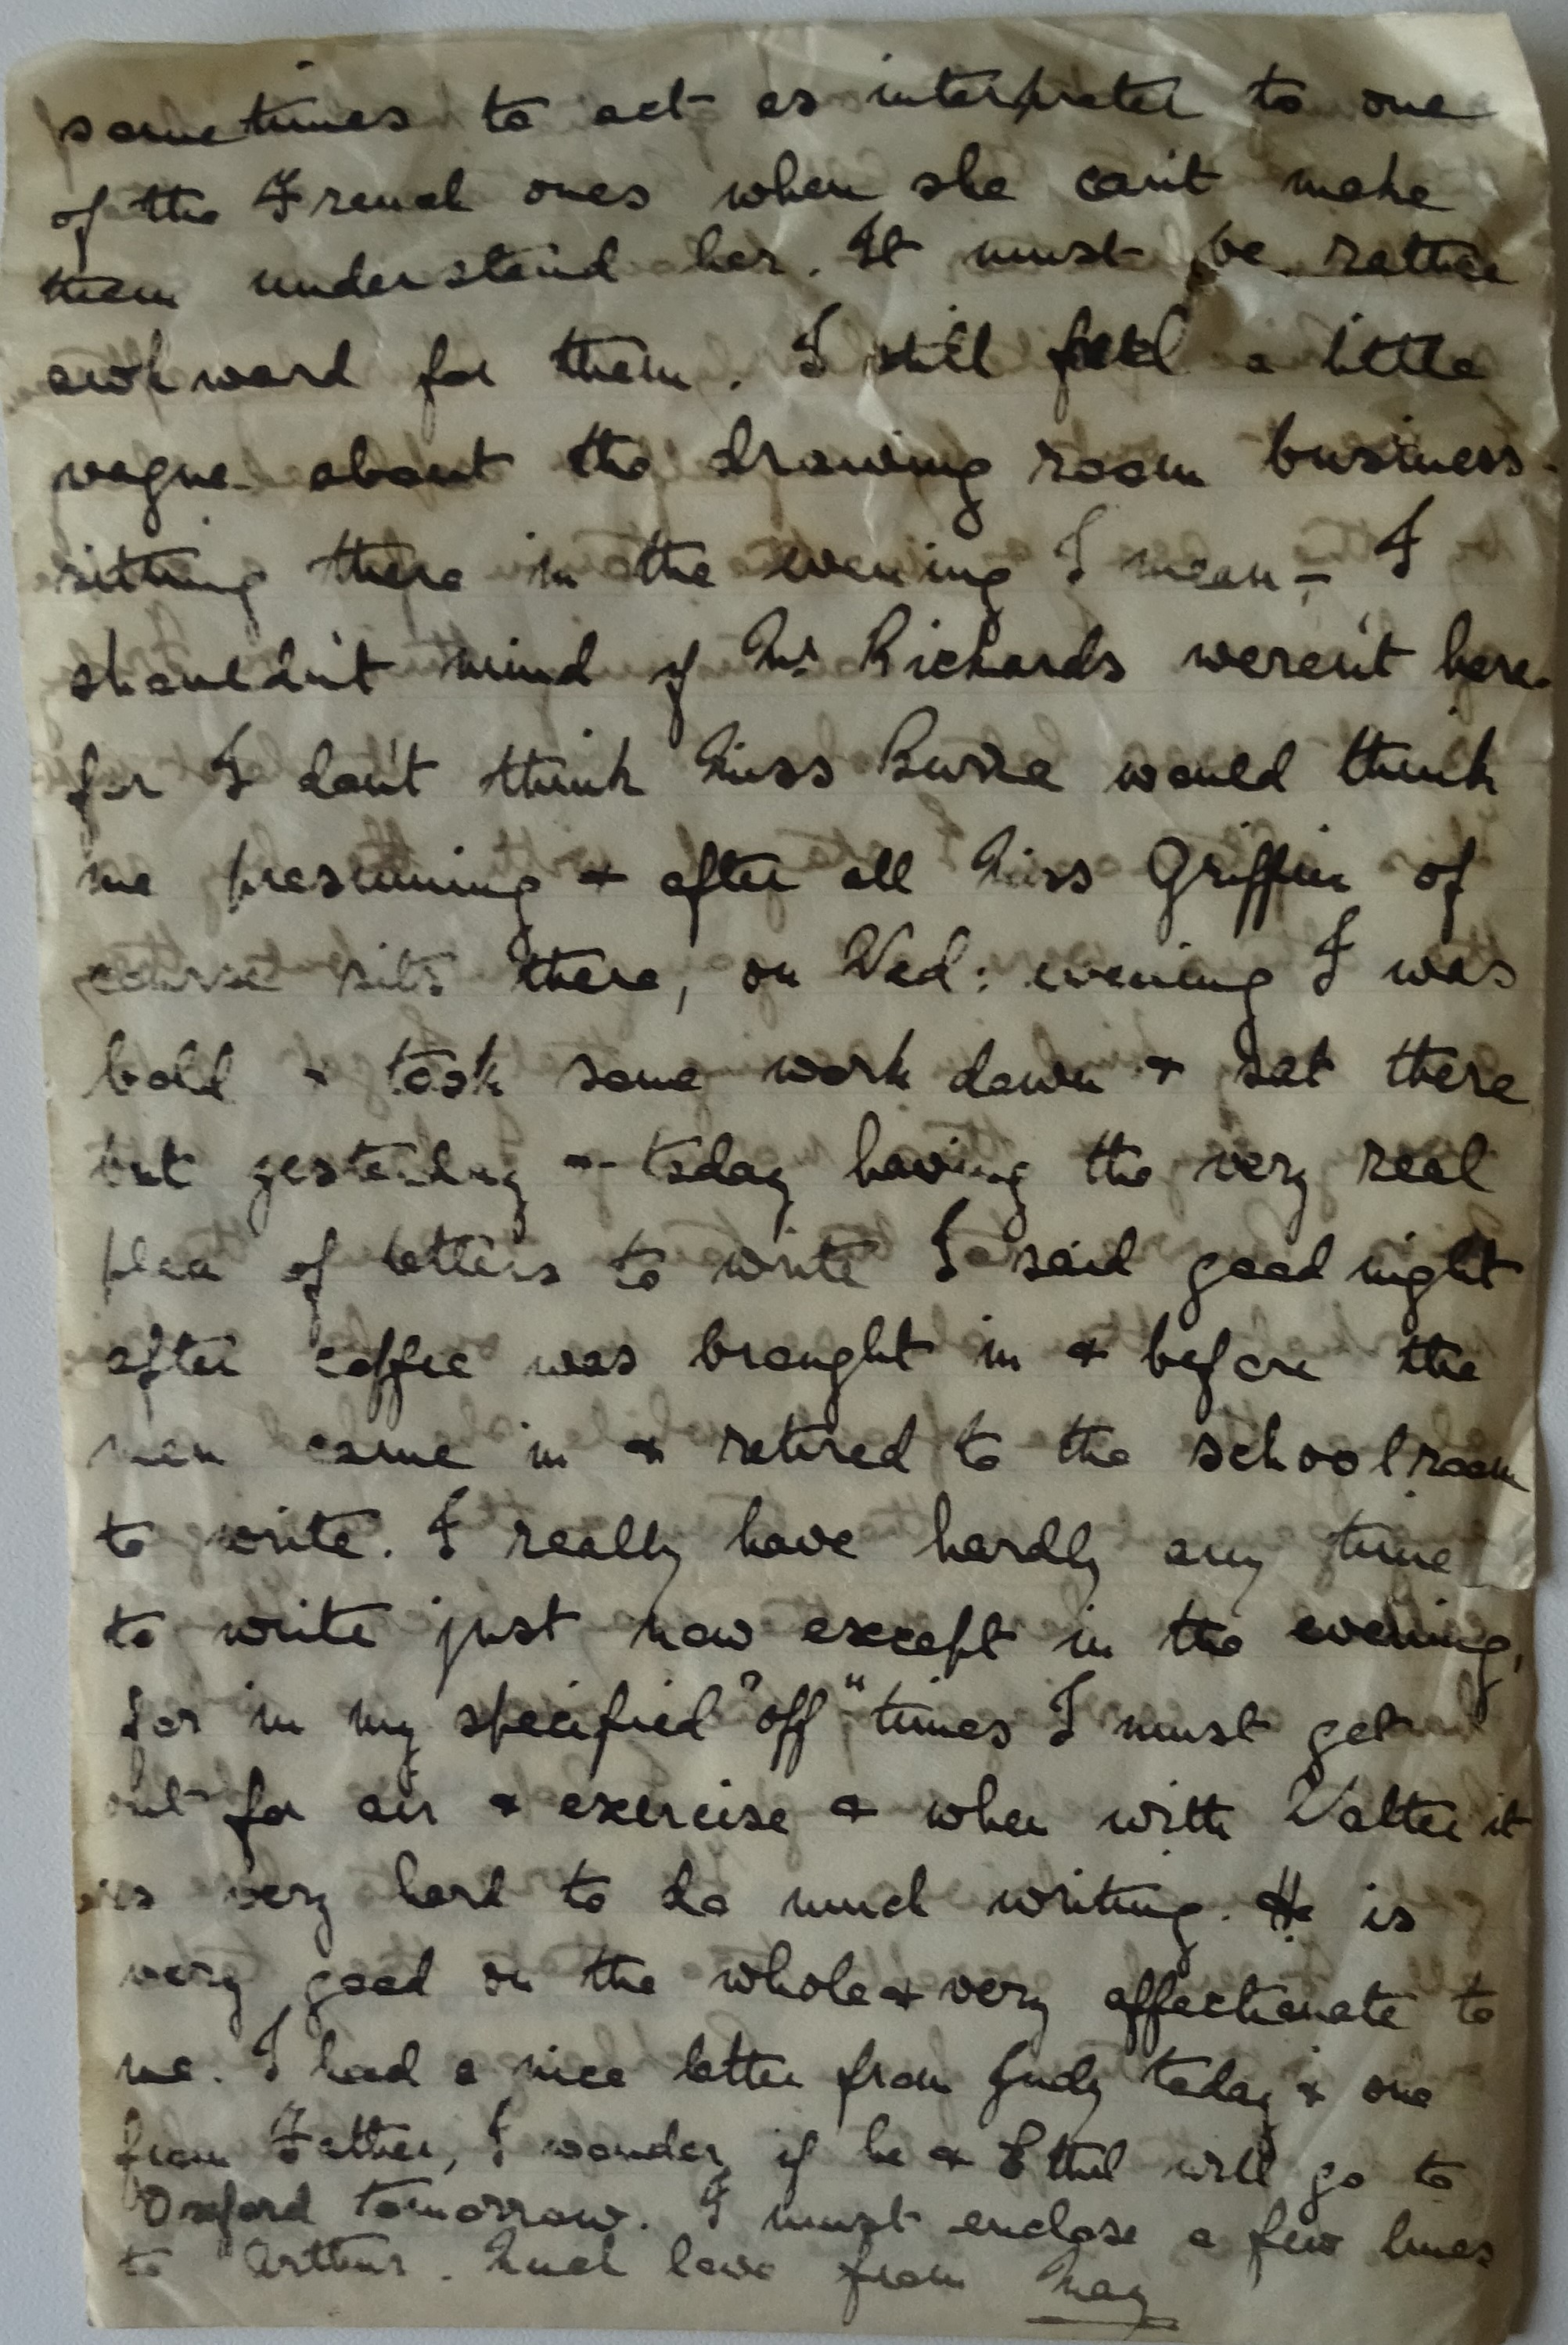 sometimes to act as interpreter to one
of the French ones when she can't make
them understand her. It must be rather
awkward for them. I still feel a little
vague about the drawing room business
sitting there in the evening I mean – I
shouldn't mind if Mr Richards weren't here
for I don't think Miss would think
me presuming & after all Miss Griffin of
course sits there, on Wed: evening I was
bold & took some work down & sat there
but yesterday & today having the very real
plea of letters to write I said good night
after coffee was brought in & before the
men came in & retired to the schoolroom
to write. I really have hardly any time
to write just now except in the evening,
for in my specified "off" times I must get
out for air & exercise & when with Walter it
is very hard to do much writing. He is
very good on the whole & very affectionate to
me. I had a nice letter from Judy today & one
from Father, I wonder if he & Ethel will go to
Oxford tomorrow. I must enclose a few lines
to Arthur. Much love from May